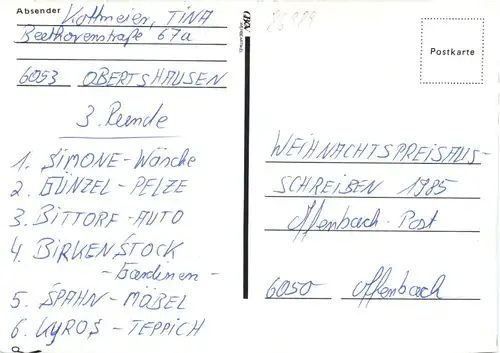 Absender
Kottmeier, TINA
Beethovenstraße 67a
6053 OBERTSHAUSEN
3. Runde
1. SIMONE-Wäsche
2. GÜNZEL-PELZE
3. BITTORF-AUTO
4. BIRKENSTOCK
-Gardinen-
5. SPAHN-MÖBEL
6. KYROS-TEPPICH
Postkarte
WEIHNACHTSPREISAUS-
SCHREIBEN 1985
Offenbach-Post
6050 Offenbach